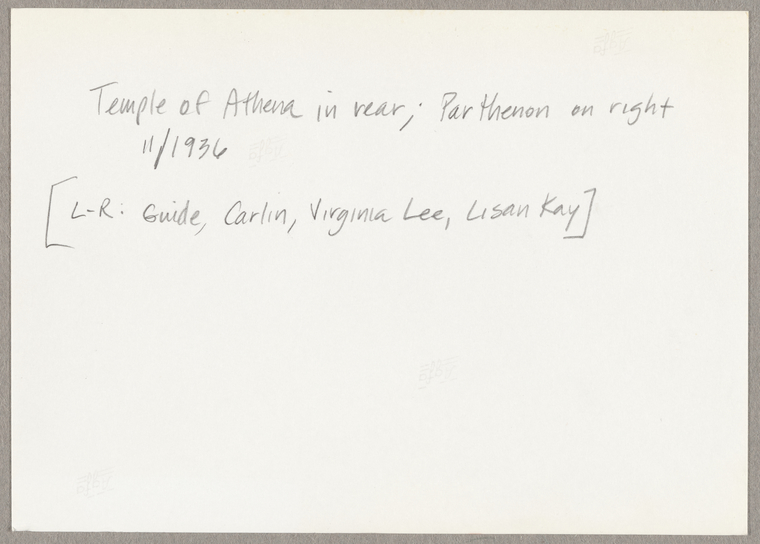 Temple of Athena in rear; Parthenon on right
11/1936
[L-R: Guide, Carlin, Virginia Lee, Lisan Kay]